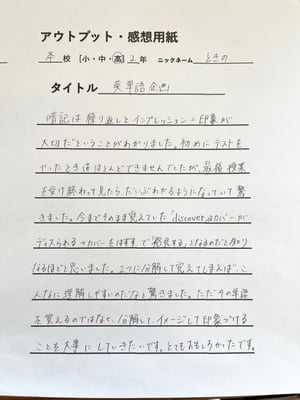 アウトプット・感想用紙
本 校 [小・中・高] 2年 ニックネーム ときの
タイトル 英単語企画
暗記は繰り返しとインプレッション=印象が
大切だということがわかりました。初めにテストを
やったときはほとんどできませんでしたが、最後 授業
を受け終わって見たら、だいぶわかるようになっていて驚
きました。今までそのまま覚えていた「discover」はカバーが
ディスられる→カバーをはずす、で「発見する」となるのだと知り
なるほどと思いました。2つに分解して覚えてしまえば、こ
んなに理解しやすいのだなと驚きました。ただその単語
を覚えるのではなく、分解して、イメージして印象づける
ことを大事にしていきたいです。とてもおもしろかったです。